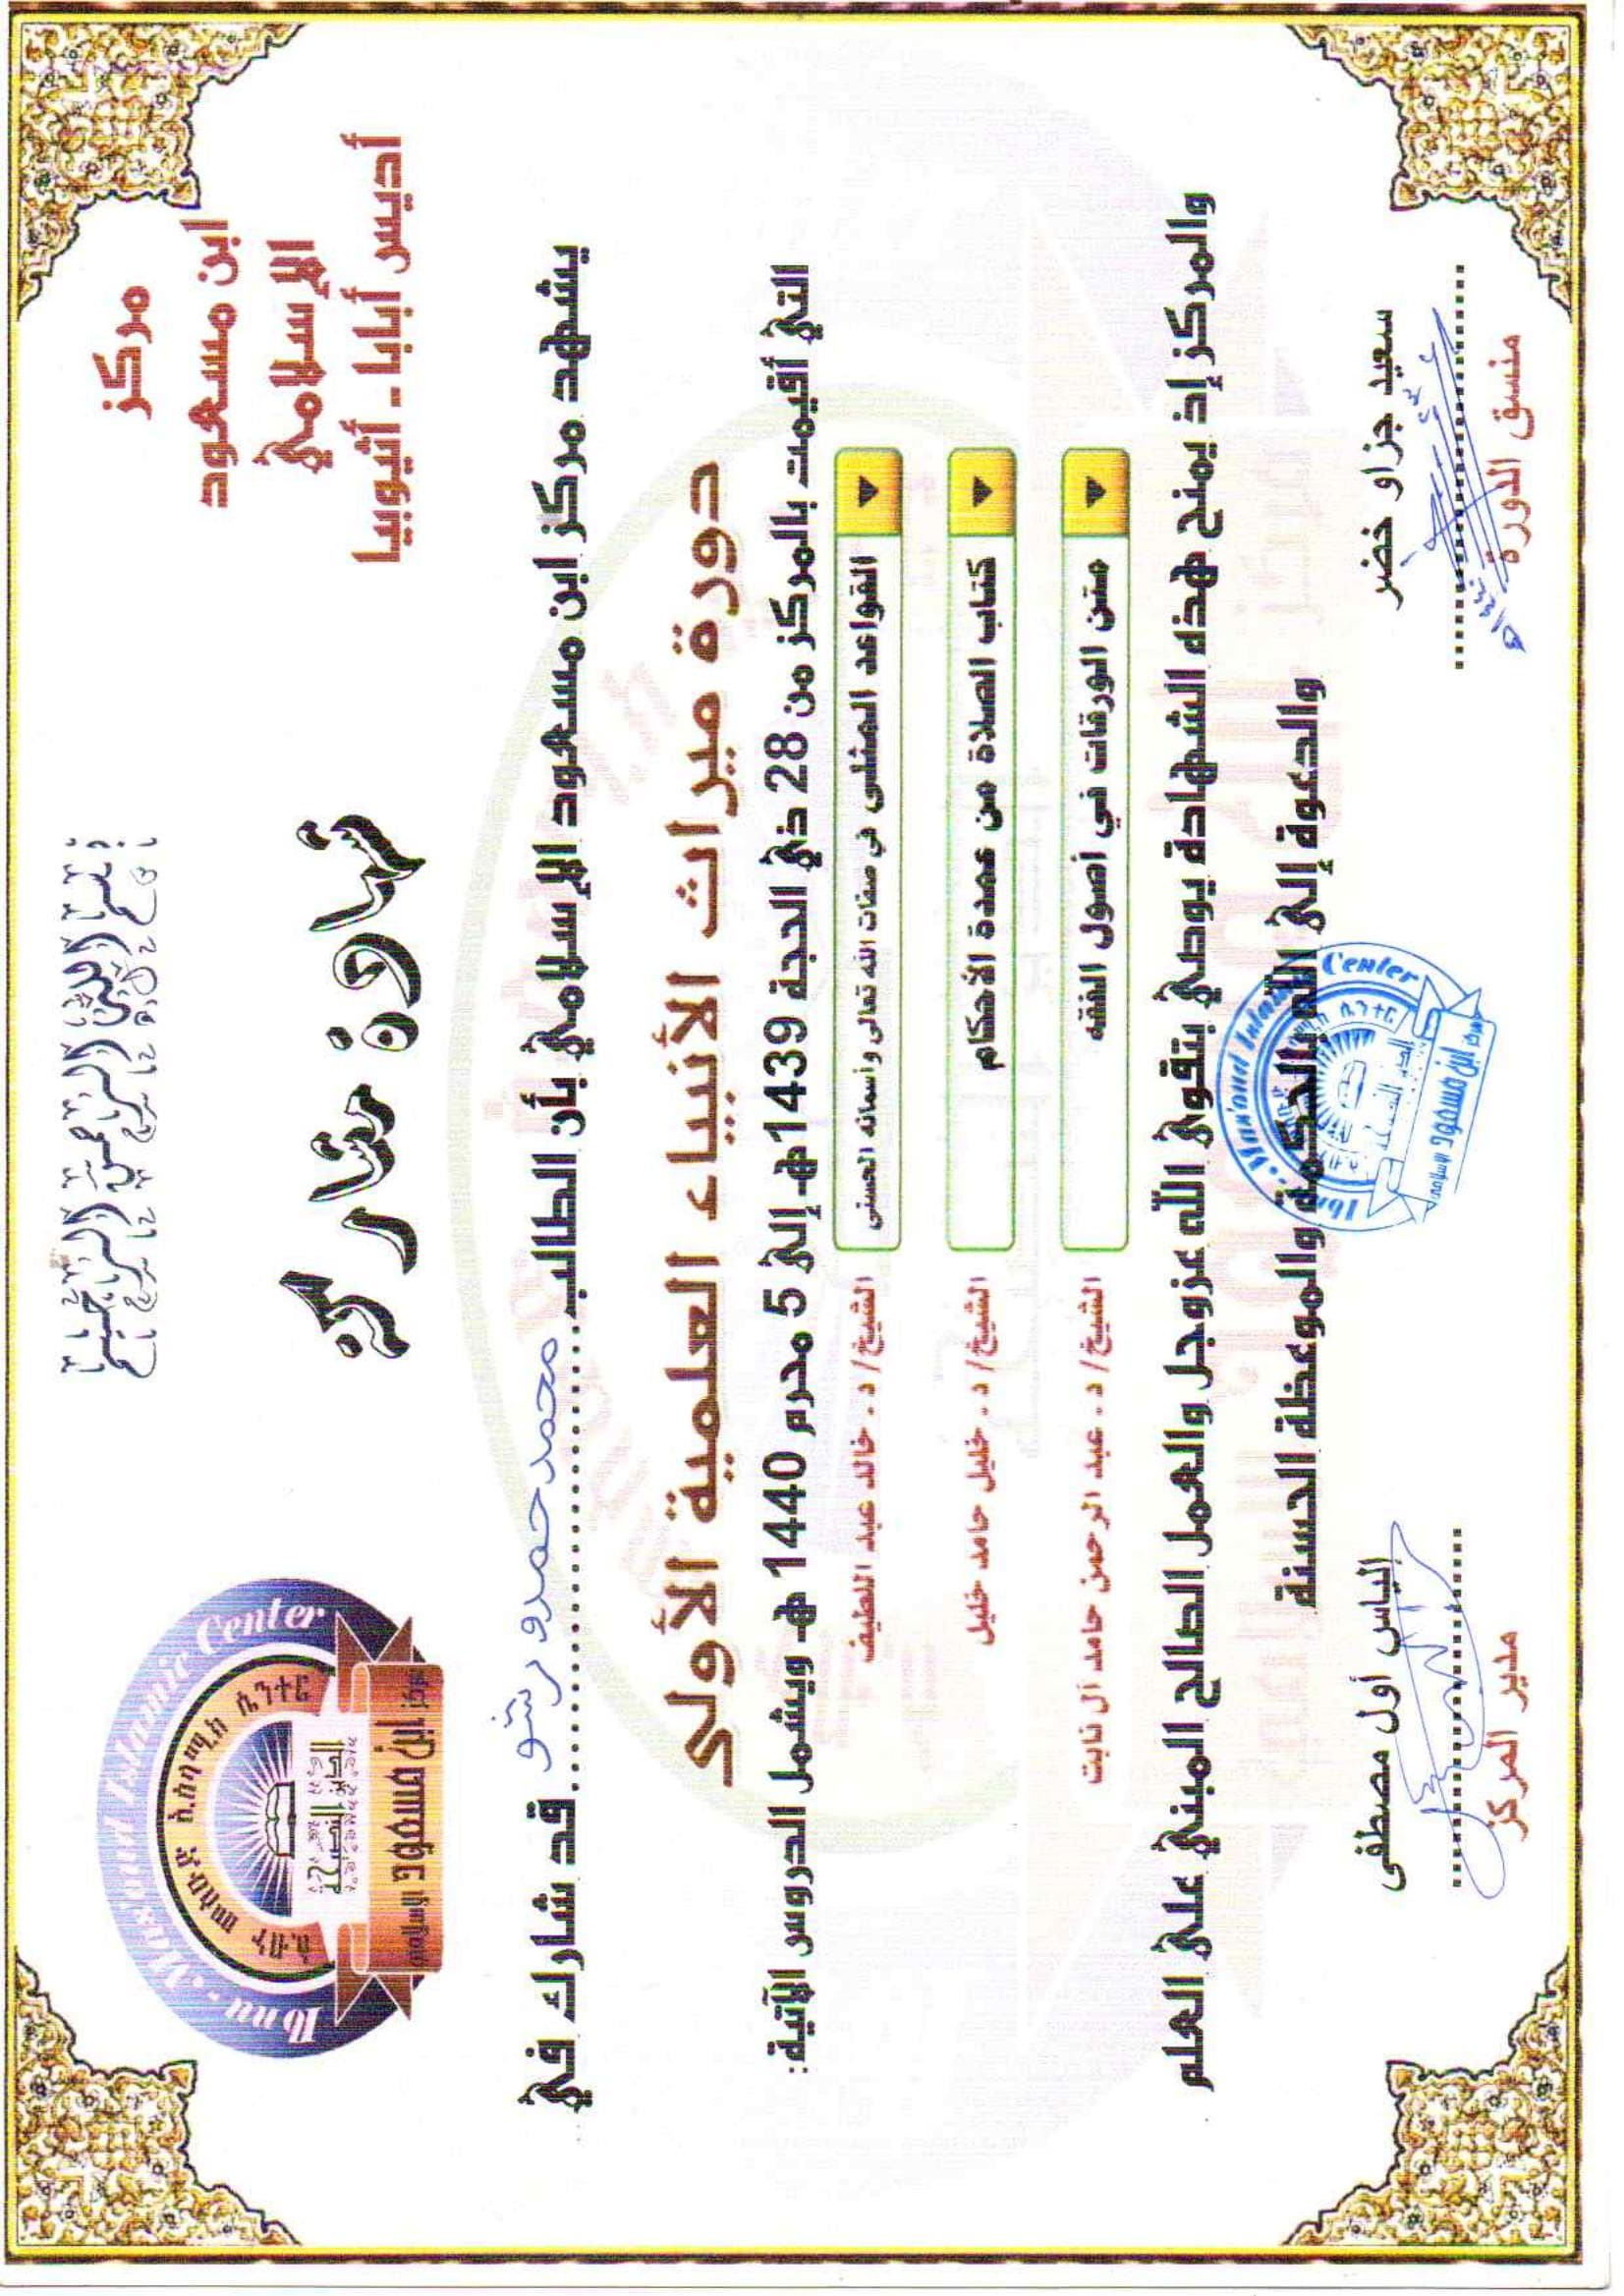 بسم الله الرحمن الرحيم
مركز
ابن مسعود
الإسلامي
أديس أبابا - أثيوبيا
Ibnu - Mas'oud Islamic Center
ኢብኑ መስዑድ ኢስላሚክ ሴንተር
مركز ابن مسعود الإسلامي
شهادة مشاركة
يشهد مركز ابن مسعود الإسلامي بأن الطالب محمد حمدو رشو قد شارك في
دورة ميراث الأنبياء العلمية الأولى
التي أقيمت بالمركز من 28 ذي الحجة 1439هـ إلى 5 محرم 1440 هـ ويشمل الدروس الآتية:
القواعد المثلى في صفات الله تعالى وأسمائه الحسنى الشيخ/ د. خالد عبد اللطيف
كتاب الصلاة من عمدة الأحكام الشيخ/ د. خليل حامد خليل
متن الورقات في أصول الفقه الشيخ/ د. عبد الرحمن حامد آل نابت
والمركز إذ يمنح هذه الشهادة يوصي بتقوى الله عزوجل والعمل الصالح المبني على العلم
والدعوة إلى الله بالحكمة والموعظة الحسنة
سعيد جزاو خضر
منسق الدورة
Ibnu - Mas'oud Islamic Center
ሴንተር
مركز ابن مسعود الإسلامي
إلياس أول مصطفى
مدير المركز